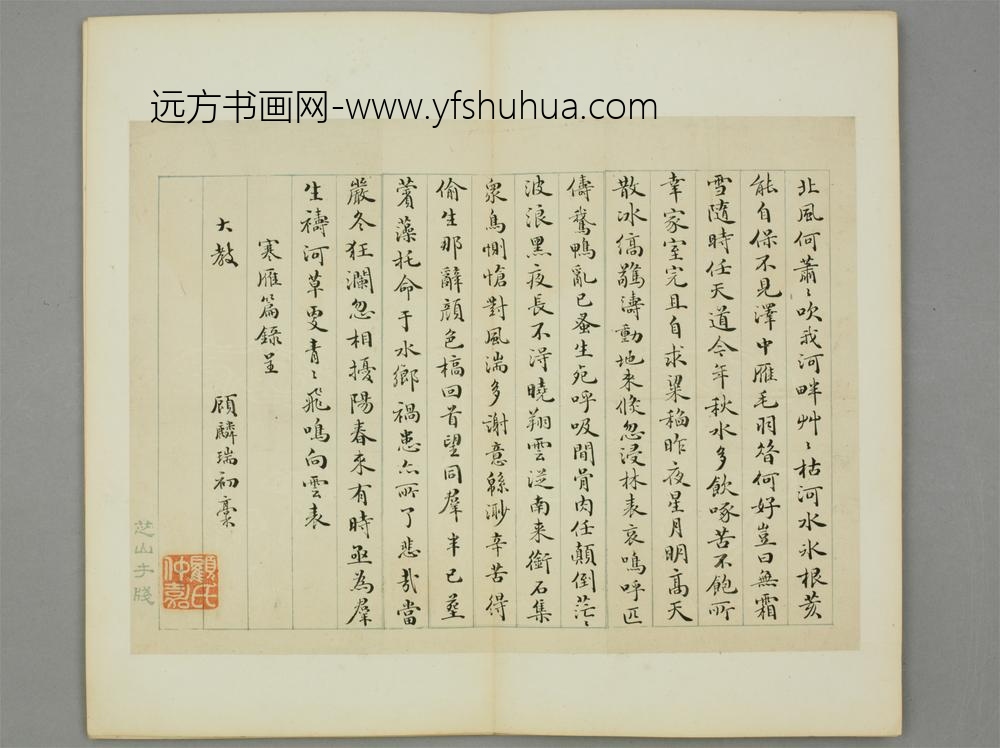 远方书画网-www.yfshuhua.com
北風何蕭〻吹我河畔艸〻枯河水氷根荄
能自保不見澤中雁毛羽脊何好豈曰無霜
雪隨時任天道今年秋水多飲啄苦不飽所
幸家室完且自求粱稻昨夜星月明高天
散冰縞驚濤動地来倏忽浸林表哀鳴呼匹
儔鵞鴨亂已蚤生死呼吸間骨肉任顛倒茫〻
波浪黑夜長不得曉翔雲從南来銜石集
衆鳥惻愴對風湍多謝意緜渺辛苦得
偷生那辭顔色槁回首望同羣半已塟
蘊藻托命于水鄉禍患亦所了悲哉當
嚴冬狂瀾忽相擾陽春来有時亟為羣
生禱河草更青〻飛鳴向雲表
寒雁篇錄呈
大教
顧麟瑞初稾
顧氏仲嘉
芝山手牋